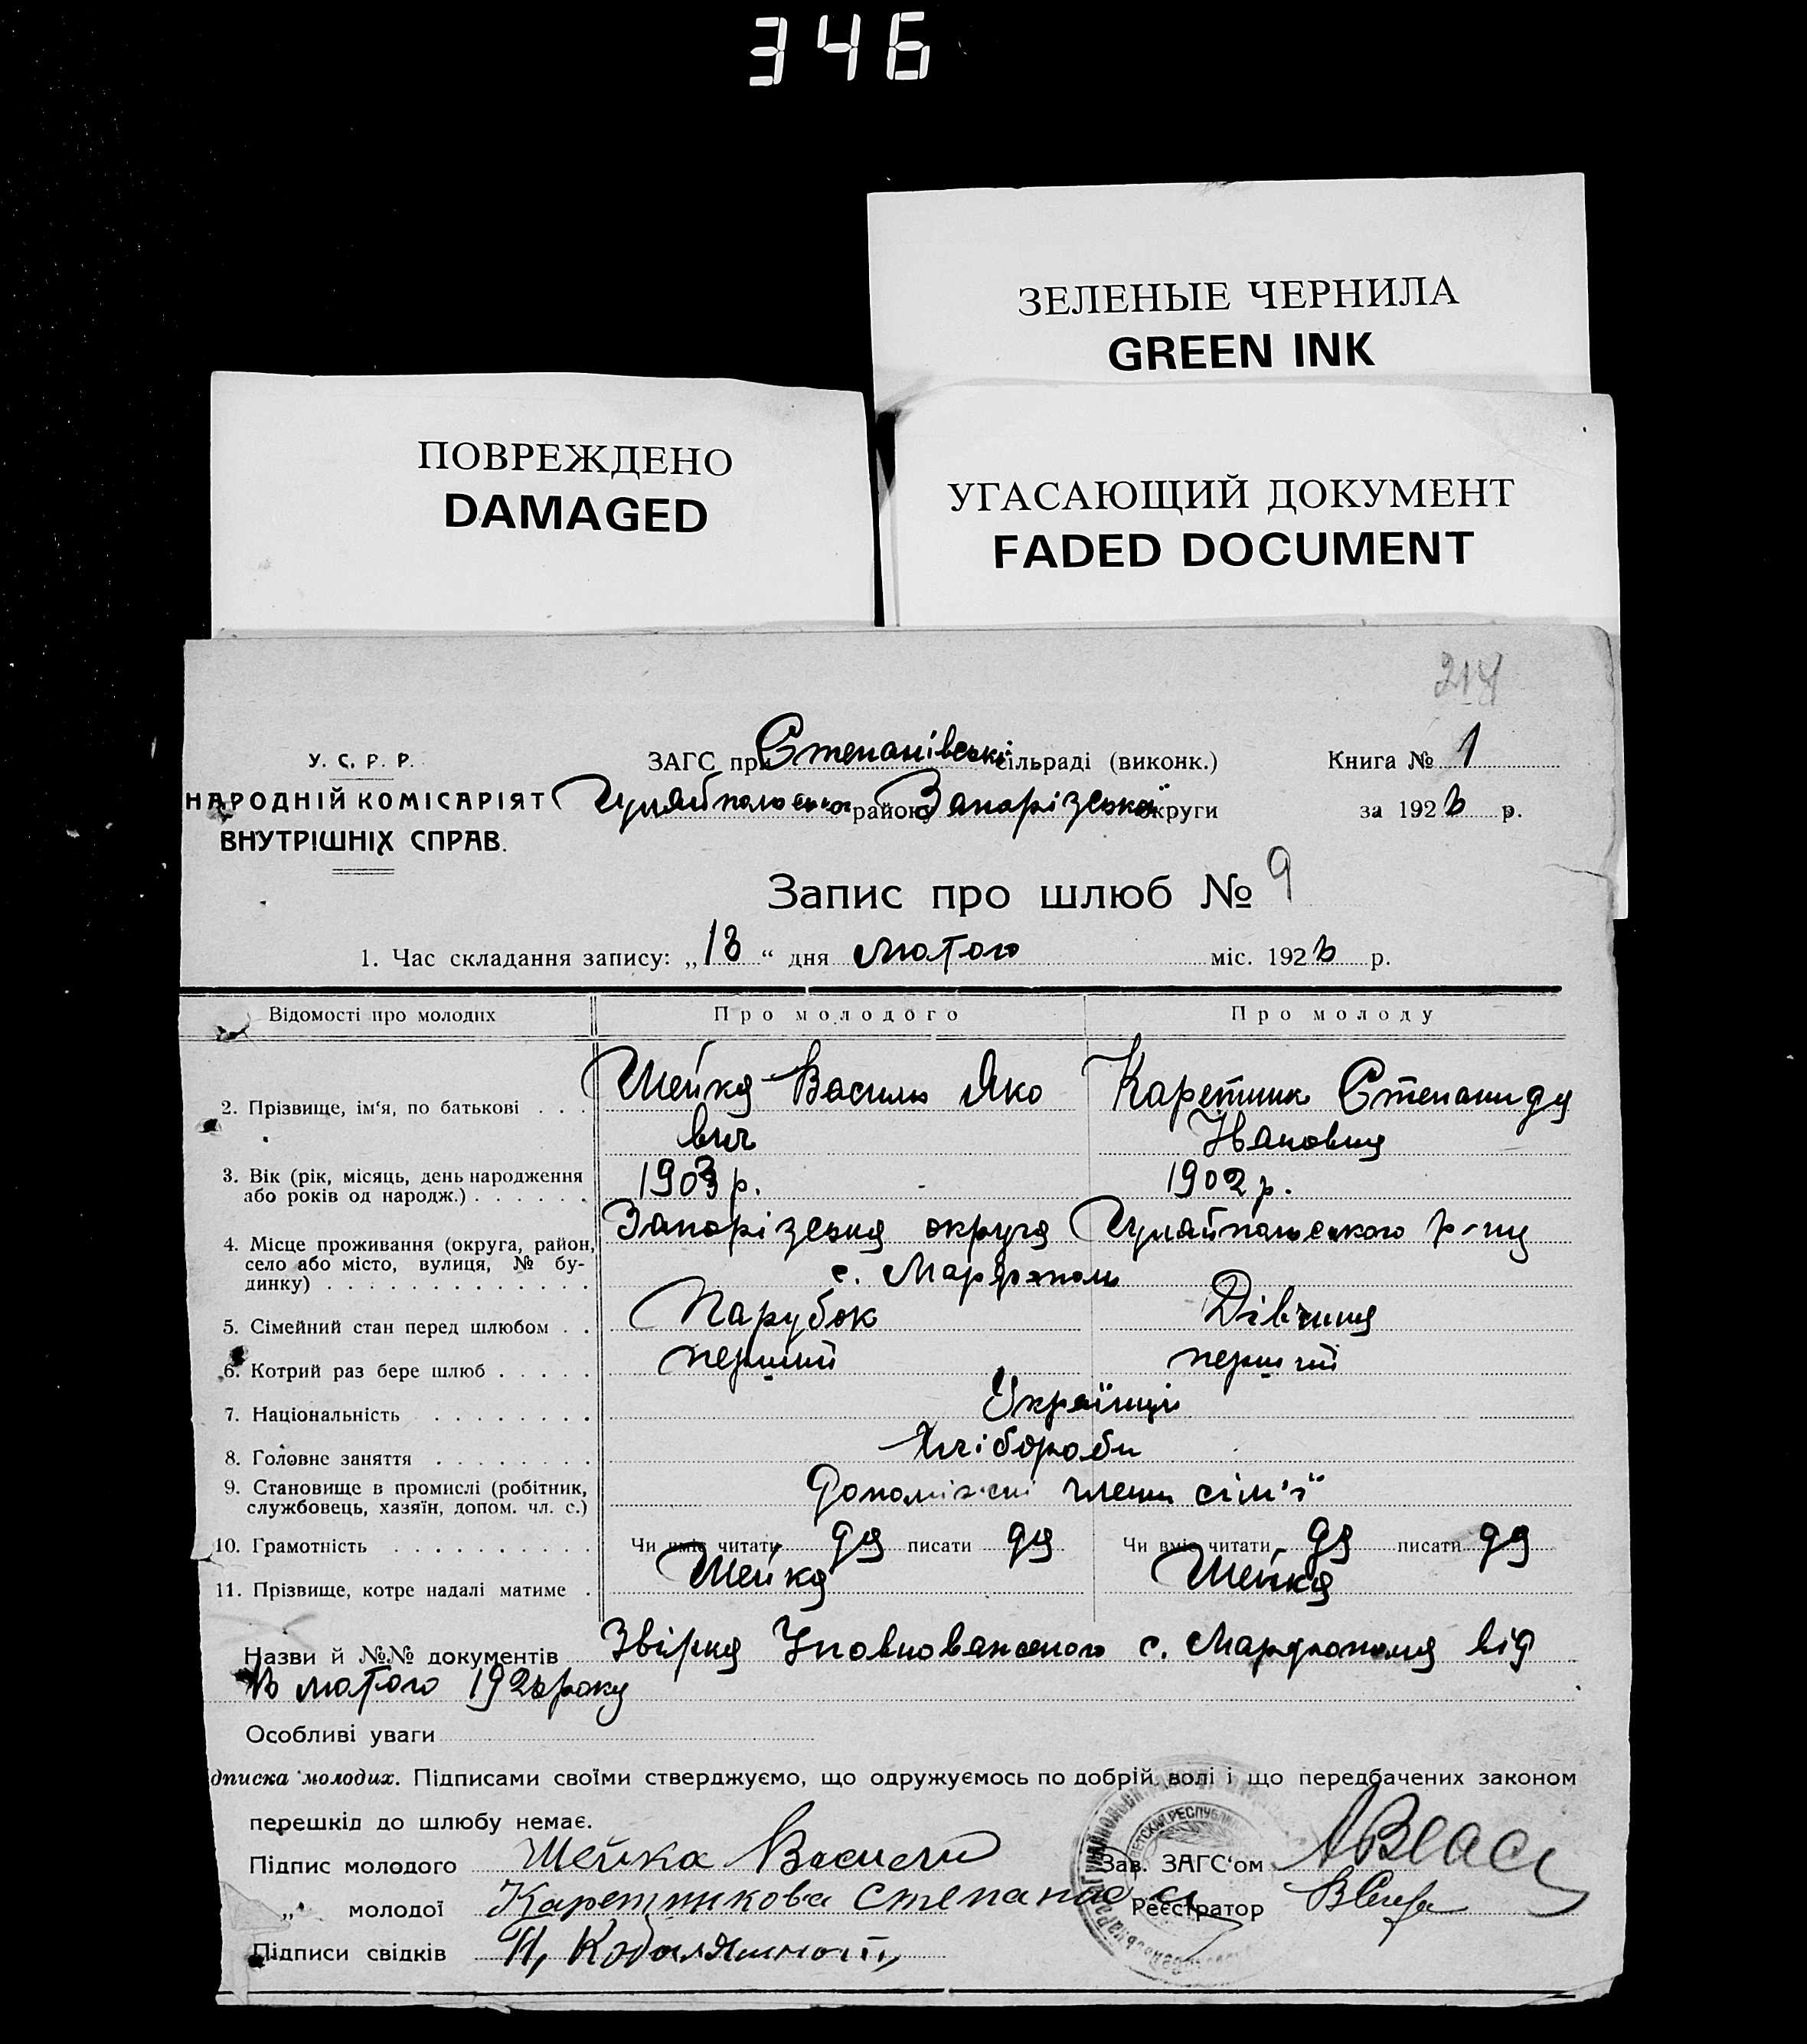 346
ЗЕЛЕНЫЕ ЧЕРНИЛА
GREEN INK
ПОВРЕЖДЕНО
DAMAGED
УГАСАЮЩИЙ ДОКУМЕНТ
FADED DOCUMENT
У. С. Р. Р.
НАРОДНІЙ КОМІСАРІЯТ
ВНУТРІШНІХ СПРАВ.
ЗАГС при Степанівські сільраді (виконк.)
Гуляйпольського району Запорізської округи
Книга № 1
за 192 р.
Запис про шлюб № 9
1. Час складання запису: „18“ дня лютого міс. 192 р.
Відомості про молодих Про молодого Про молоду
2. Прізвище, ім‘я, по батькові . . . Шейка Василь Яко Каретник Степанида
вич Івановна
3. Вік (рік, місяць, день народження
або років од народж.) . . . . . . 1903 р. 1902 р.
4. Місце проживання (округа, район, Запорізська округа Гуляйпольського р-ну
село або місто, вулиця, № бу-
динку) . . . . . . . . . . . . . с. Марфополь
5. Сімейний стан перед шлюбом . . Парубок Дівчина
6. Котрий раз бере шлюб . . . . . перший перший
7. Національність . . . . . . . . Українці
8. Головне заняття . . . . . . . . Хлібороби
9. Становище в промислі (робітник,
службовець, хазяїн, допом. чл. с.) Допоміжні члени сім'ї
10. Грамотність . . . . . . . . . . Чи вміє читати да писати да Чи вміє читати да писати да
11. Прізвище, котре надалі матиме . Шейка Шейка
Назви й №№ документів Звірка Уповноваженого с. Марфополя від
лютого року
Особливі уваги
дписка молодих. Підписами своїми стверджуємо, що одружуємось по добрій волі і що передбачених законом
перешкід до шлюбу немає.
Підпис молодого Шейка Василь
Зав. ЗАГС‘ом
„ молодої Каретникова
Реєстратор
Підписи свідків